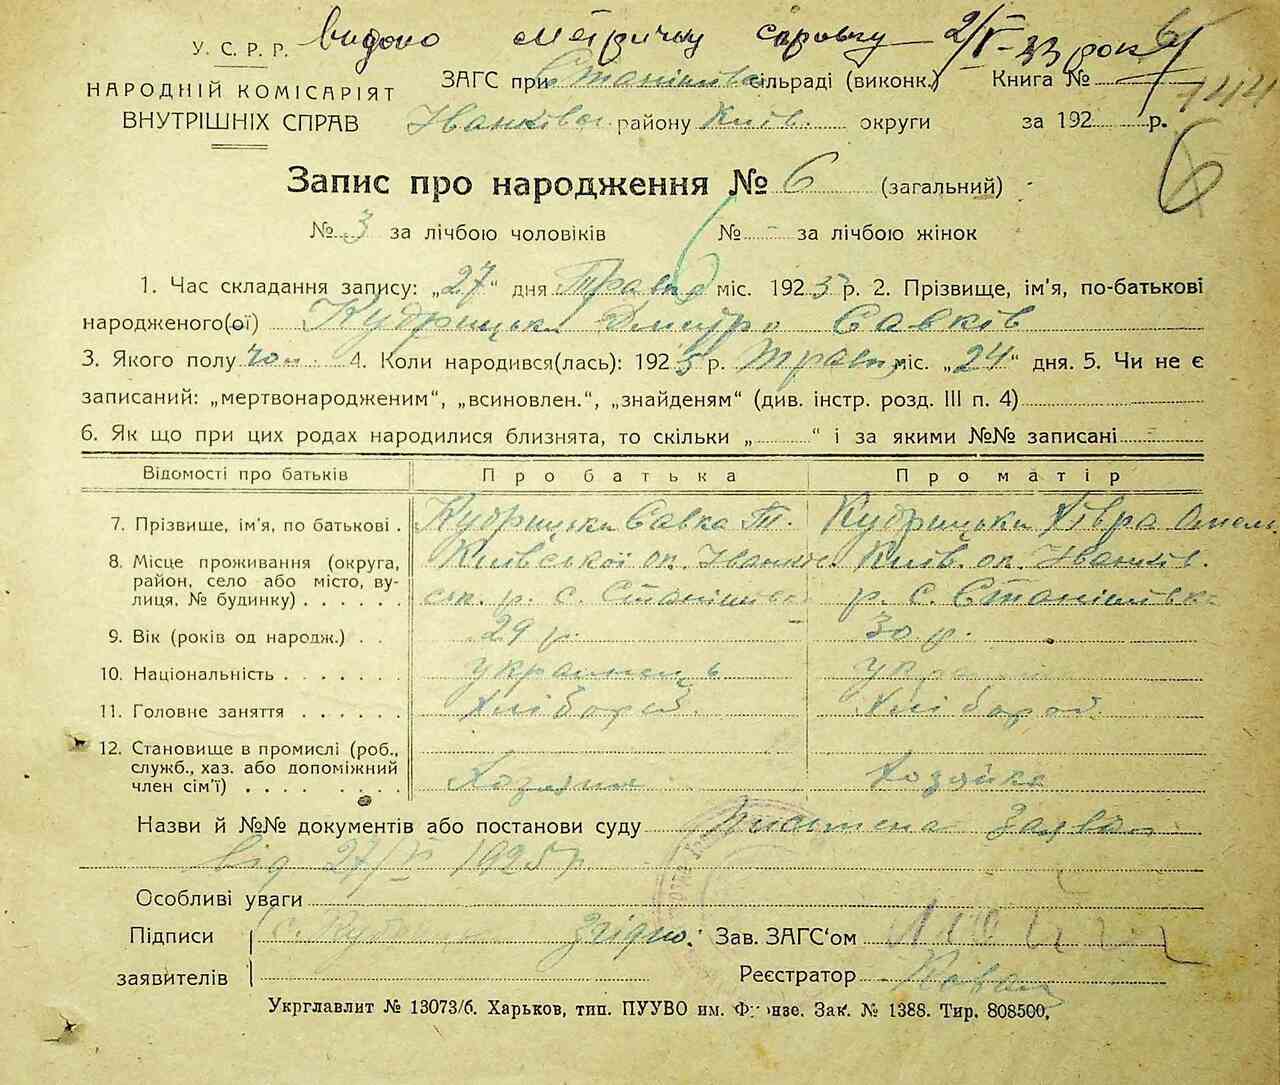 видано метричну справку 2/V-33 року
У. С. Р. Р.
НАРОДНІЙ КОМІСАРІЯТ
ВНУТРІШНІХ СПРАВ
ЗАГС при Станішівс сільраді (виконк.) Книга №
Іванківс. району Київ. округи за 192 р.
6
Запис про народження № 6 (загальний)
№ 3 за лічбою чоловіків № - за лічбою жінок
1. Час складання запису: „27“ дня Травня міс. 1925 р. 2. Прізвище, ім'я, по-батькові
народженого(ої) Кудрицький Дмитро Савків
3. Якого полу чол. 4. Коли народився(лась): 1925 р. Травня міс. „24“ дня. 5. Чи не є
записаний: „мертвонародженим“, „всиновлен.“, „знайденям“ (див. інстр. розд. III п. 4)
6. Як що при цих родах народилися близнята, то скільки „ “ і за якими №№ записані
Відомості про батьків Про батька Про матір
7. Прізвище, ім'я, по батькові . Кудрицький Савка Т. Кудрицька Хівра Омель
8. Місце проживання (округа, Київської ок. Іванків Київ. ок. Іванків.
район, село або місто, ву- ськ. р. с. Станішівка р. с. Станішівка
лиця, № будинку) . . . . . .
9. Вік (років од народж.) . . 29 р. 30 р.
10. Національність . . . . . . . українець укр
11. Головне заняття . . . . . . Хлібороб. Хлібороб
12. Становище в промислі (роб.,
служб., хаз. або допоміжний Хозяин Хозяйка
член сім'ї) . . . . . . . . . .
Назви й №№ документів або постанови суду Письмена Заява
від 27/V 1925 р.
Особливі уваги
Підписи С. Куд Згідно: Зав. ЗАГС'ом
заявителів Реєстратор
Укрглавлит № 13073/б. Харьков, тип. ПУУВО им. Фрунзе. Зак. № 1388. Тир. 808500.